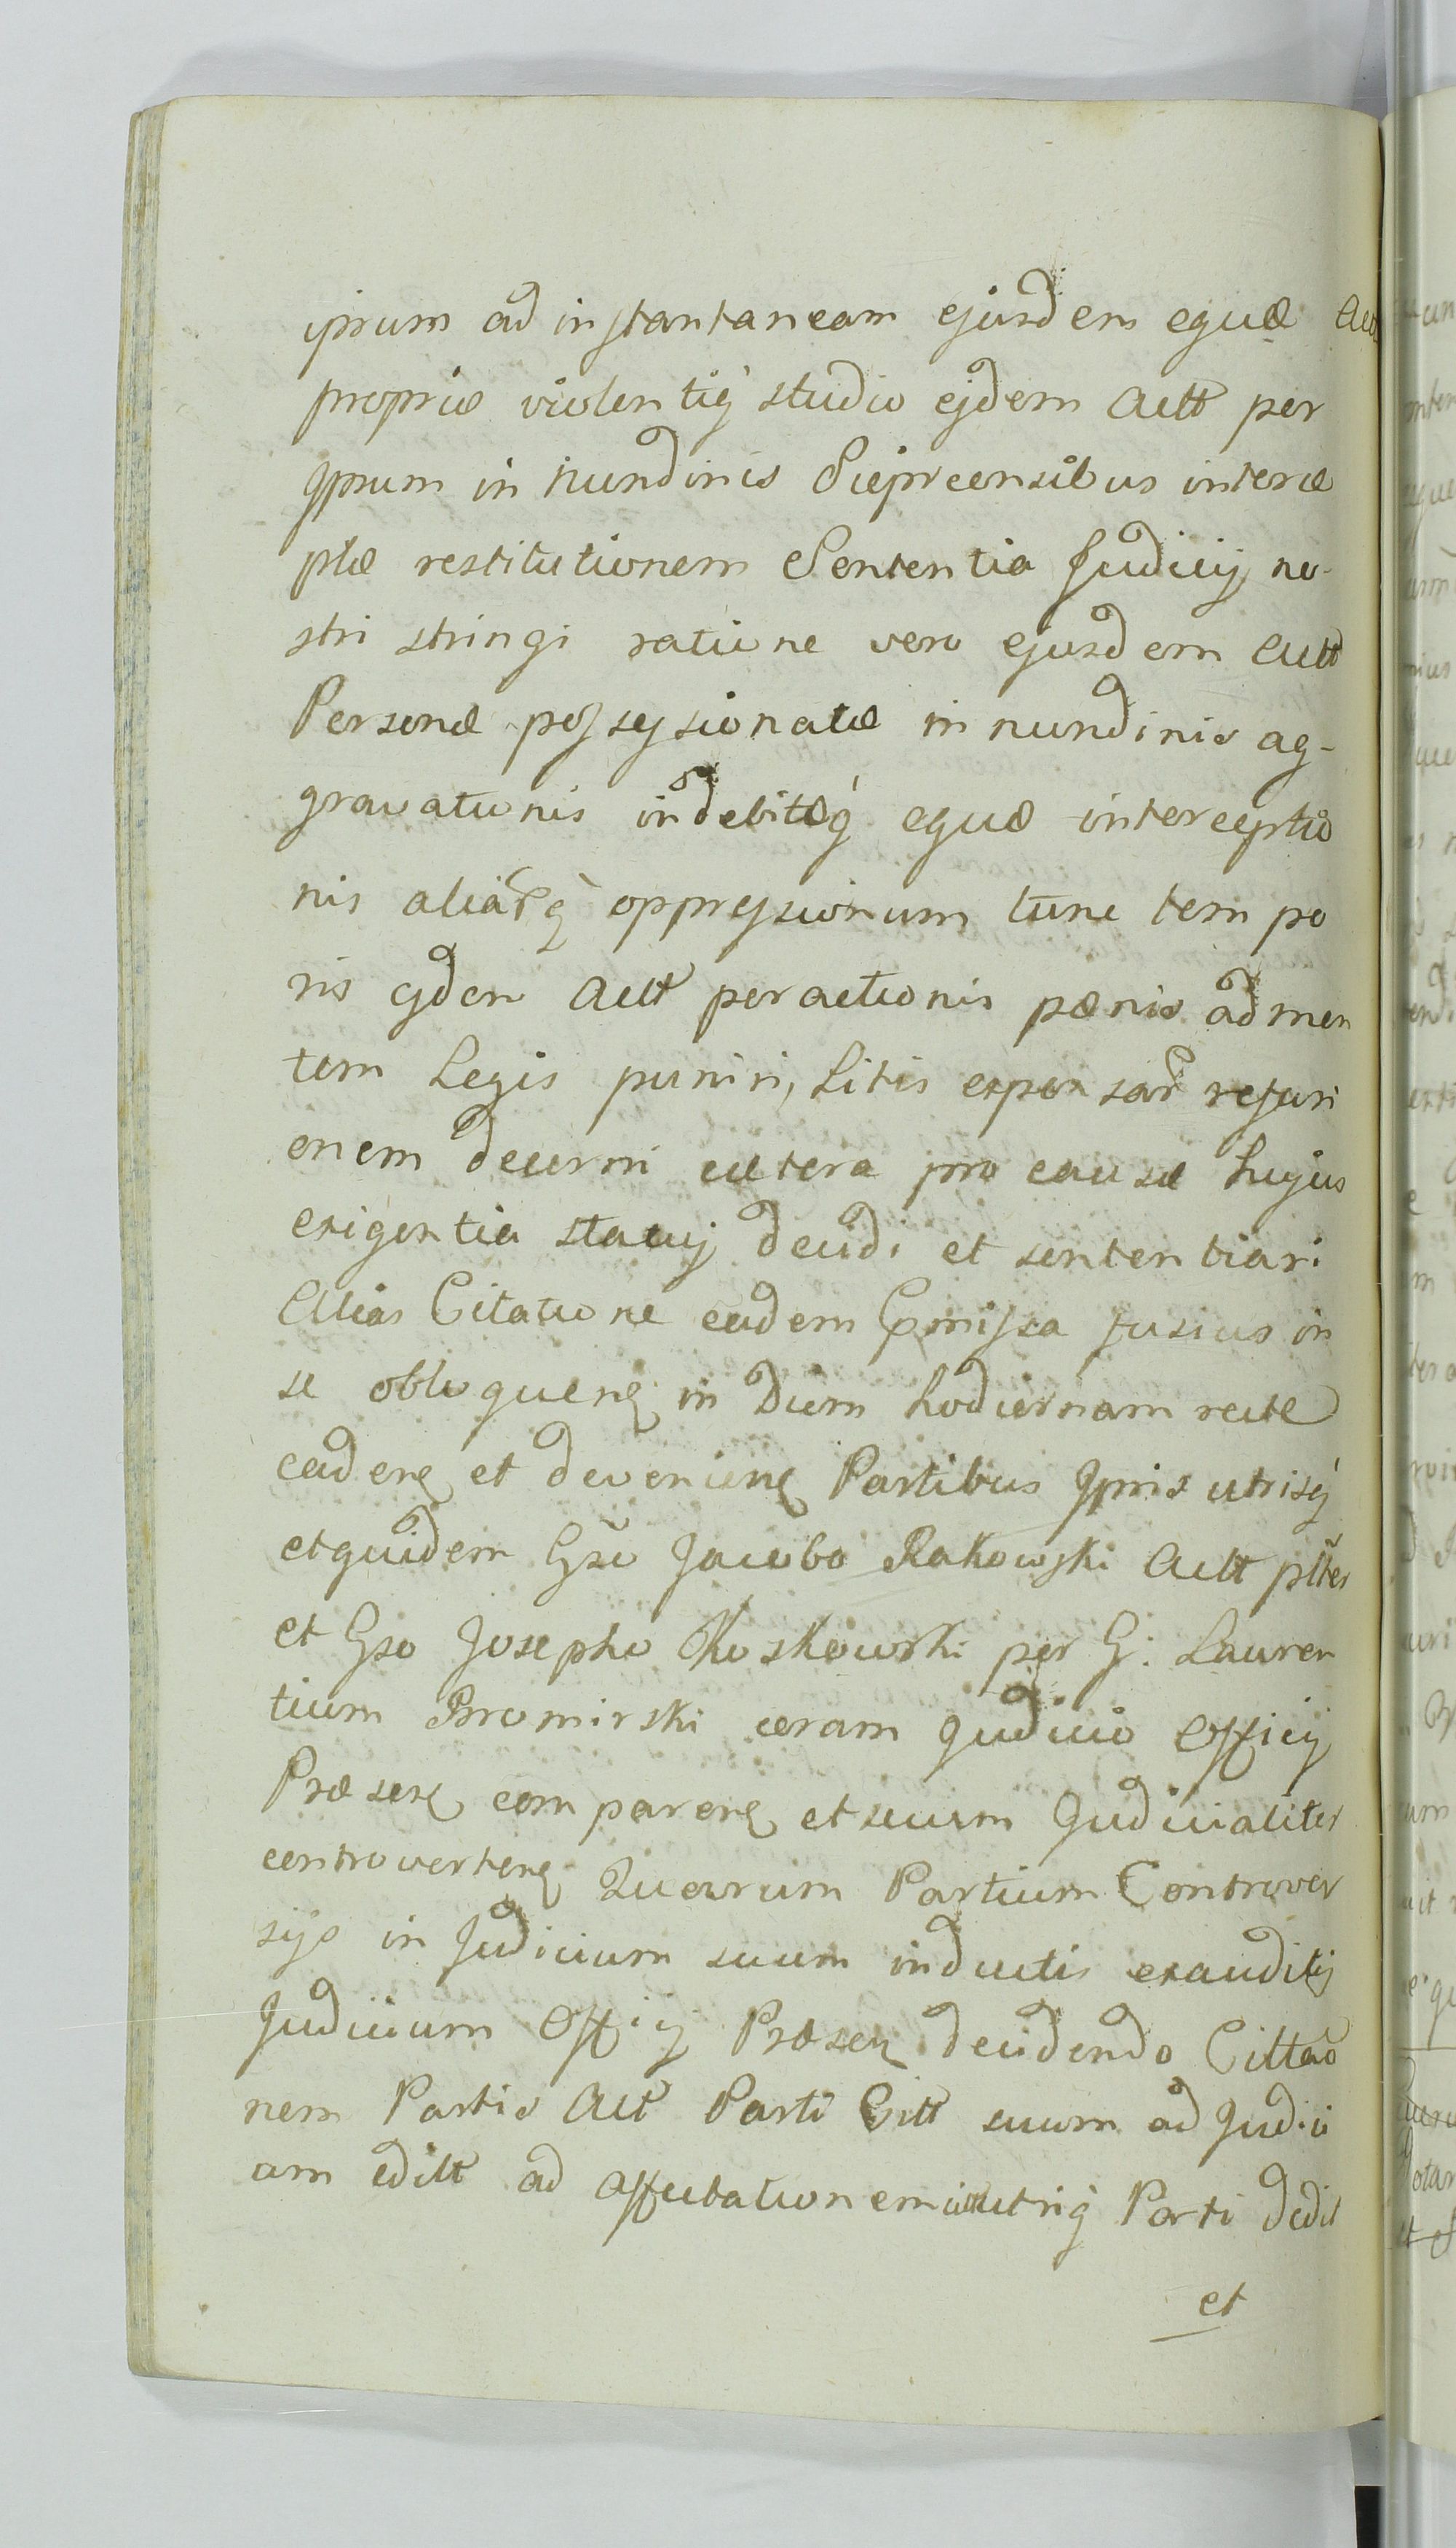 ipsum ad instantaneam ejusdem equæ
propriæ violentiq́ studio ejdem Actt per
Ipsum in nundinis Sieprcensibus interce
ptæ restitutionem Sententia Judicij no-
stri stringi ratione vero ejusdem Actt
Personæ possessionatæ in nundinis ag-
gravationis indebitæq́ equæ interceptio
nis aliarq́ oppressionum tunc tempo
ris ejdem Actt peractionis pænis ad men
tem Legis puniri, Litis expensar refusi
onem decerni cætera pro causæ hujus
exigentia statuj decidi et sententiari
Alias Citatione eadem præmissa fusius in
se obloquenȩ in Diem hodiernam recte
cadenȩ et devenienȩ Partibus Ipsis utrisq́
et quidem Gso Jacobo Rakowski Actt plter
et Gso Josepho Koskowski per G: Lauren
tium Bromirski coram Judicio Officij
Præsenȩ comparenȩ et suum Judicialiter
controvertenȩ Quarum Partium Controver
sijs in Judicium suum inductis exauditis
Judicium Officij Præsenȩ decidendo Cittao
nem Partis Actt Parti Citt suum ad Judici
um editt ad affectationem utriq́ Parti dedit
et